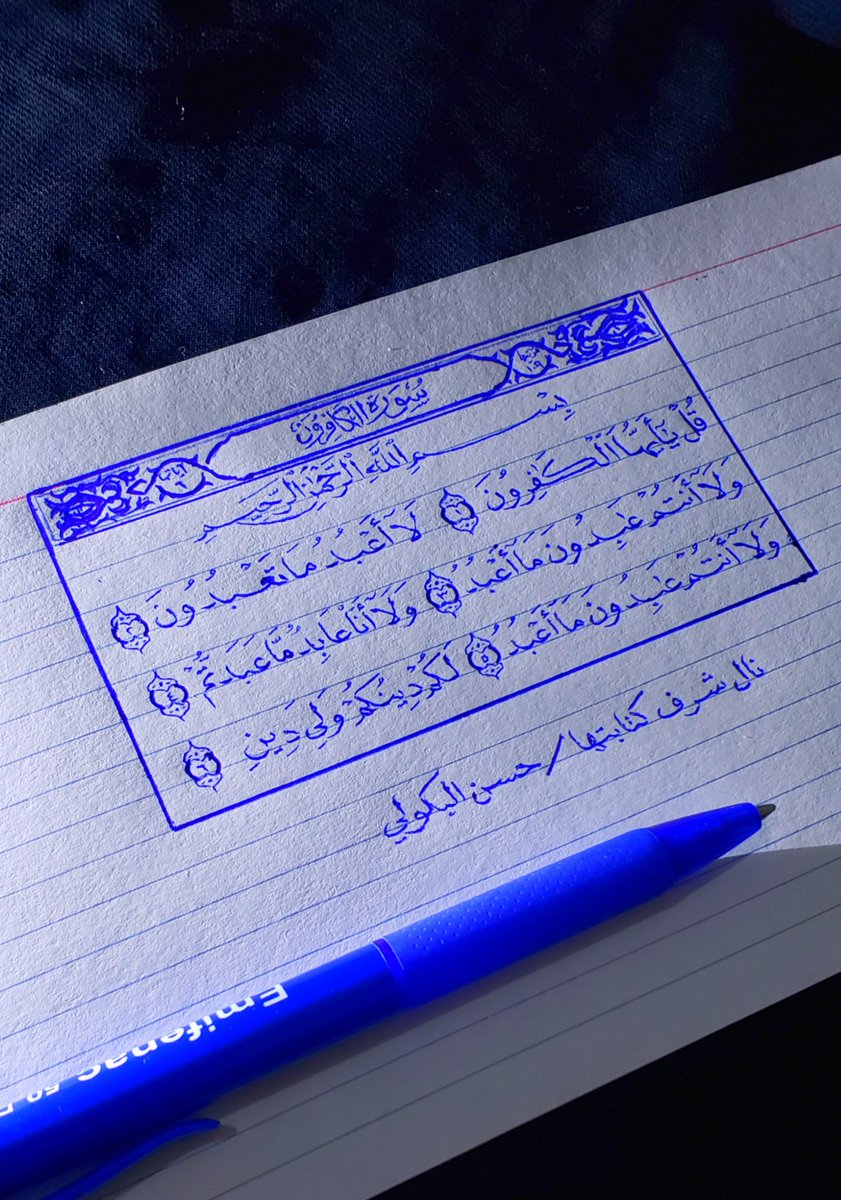 سُورَةُ الكَافِرُونَ
بِسْمِ ٱللَّهِ ٱلرَّحْمَٰنِ ٱلرَّحِيمِ
قُلْ يَٰٓأَيُّهَا ٱلْكَٰفِرُونَ ١ لَآ أَعْبُدُ مَا تَعْبُدُونَ ٢
وَلَآ أَنتُمْ عَٰبِدُونَ مَآ أَعْبُدُ ٣ وَلَآ أَنَا۠ عَابِدٌ مَّا عَبَدتُّمْ ٤
وَلَآ أَنتُمْ عَٰبِدُونَ مَآ أَعْبُدُ ٥ لَكُمْ دِينُكُمْ وَلِيَ دِينِ ٦
نال شرف كتابتها / حسن البكولي
Emifenac 50